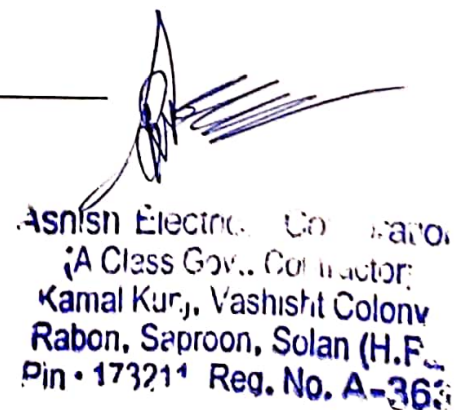 Ashish Electric
(A Class Gov.. Contractor)
Kamal Kunj, Vashisht Colony
Rabon, Saproon, Solan (H.P.
Pin - 173211 Reg. No. A-363